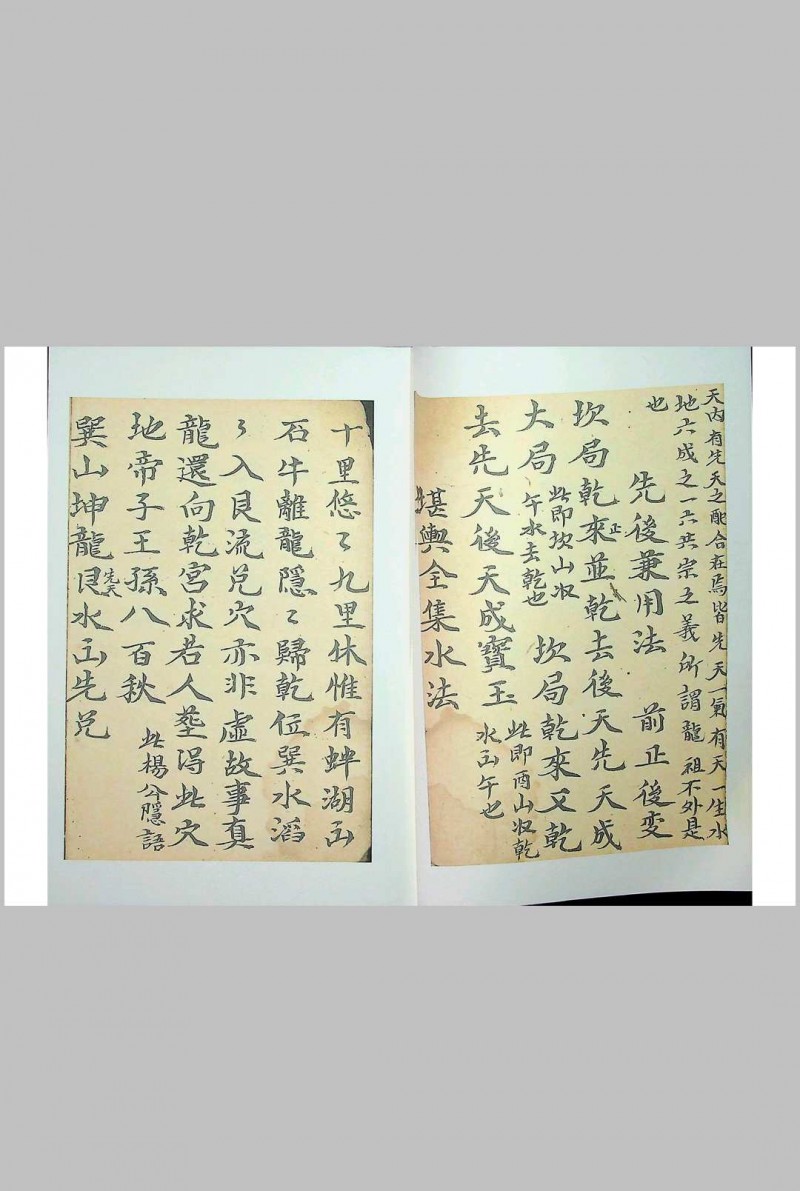 天內有先天之配合在焉皆先天一氣有天一生水
地六成之一六共宗之義所謂龍祖不外是
也
先後兼用法 前正後变
坎局乾來並乾去後天先天成
正
大局 此即坎山收午水去乾也 坎局乾來又乾
去先天後天成寶玉 此即酉山收乾水出午也
堪輿全集水法
十里悠〻九里休惟有蚌湖出
石牛離龍隱〻歸乾位巽水滔
〻入艮流兑穴亦非虛故事真
龍還向乾宮求若人塟得此穴
地帝子王孫八百秋 此楊公隱語
巽山坤龍先天艮水出先兑